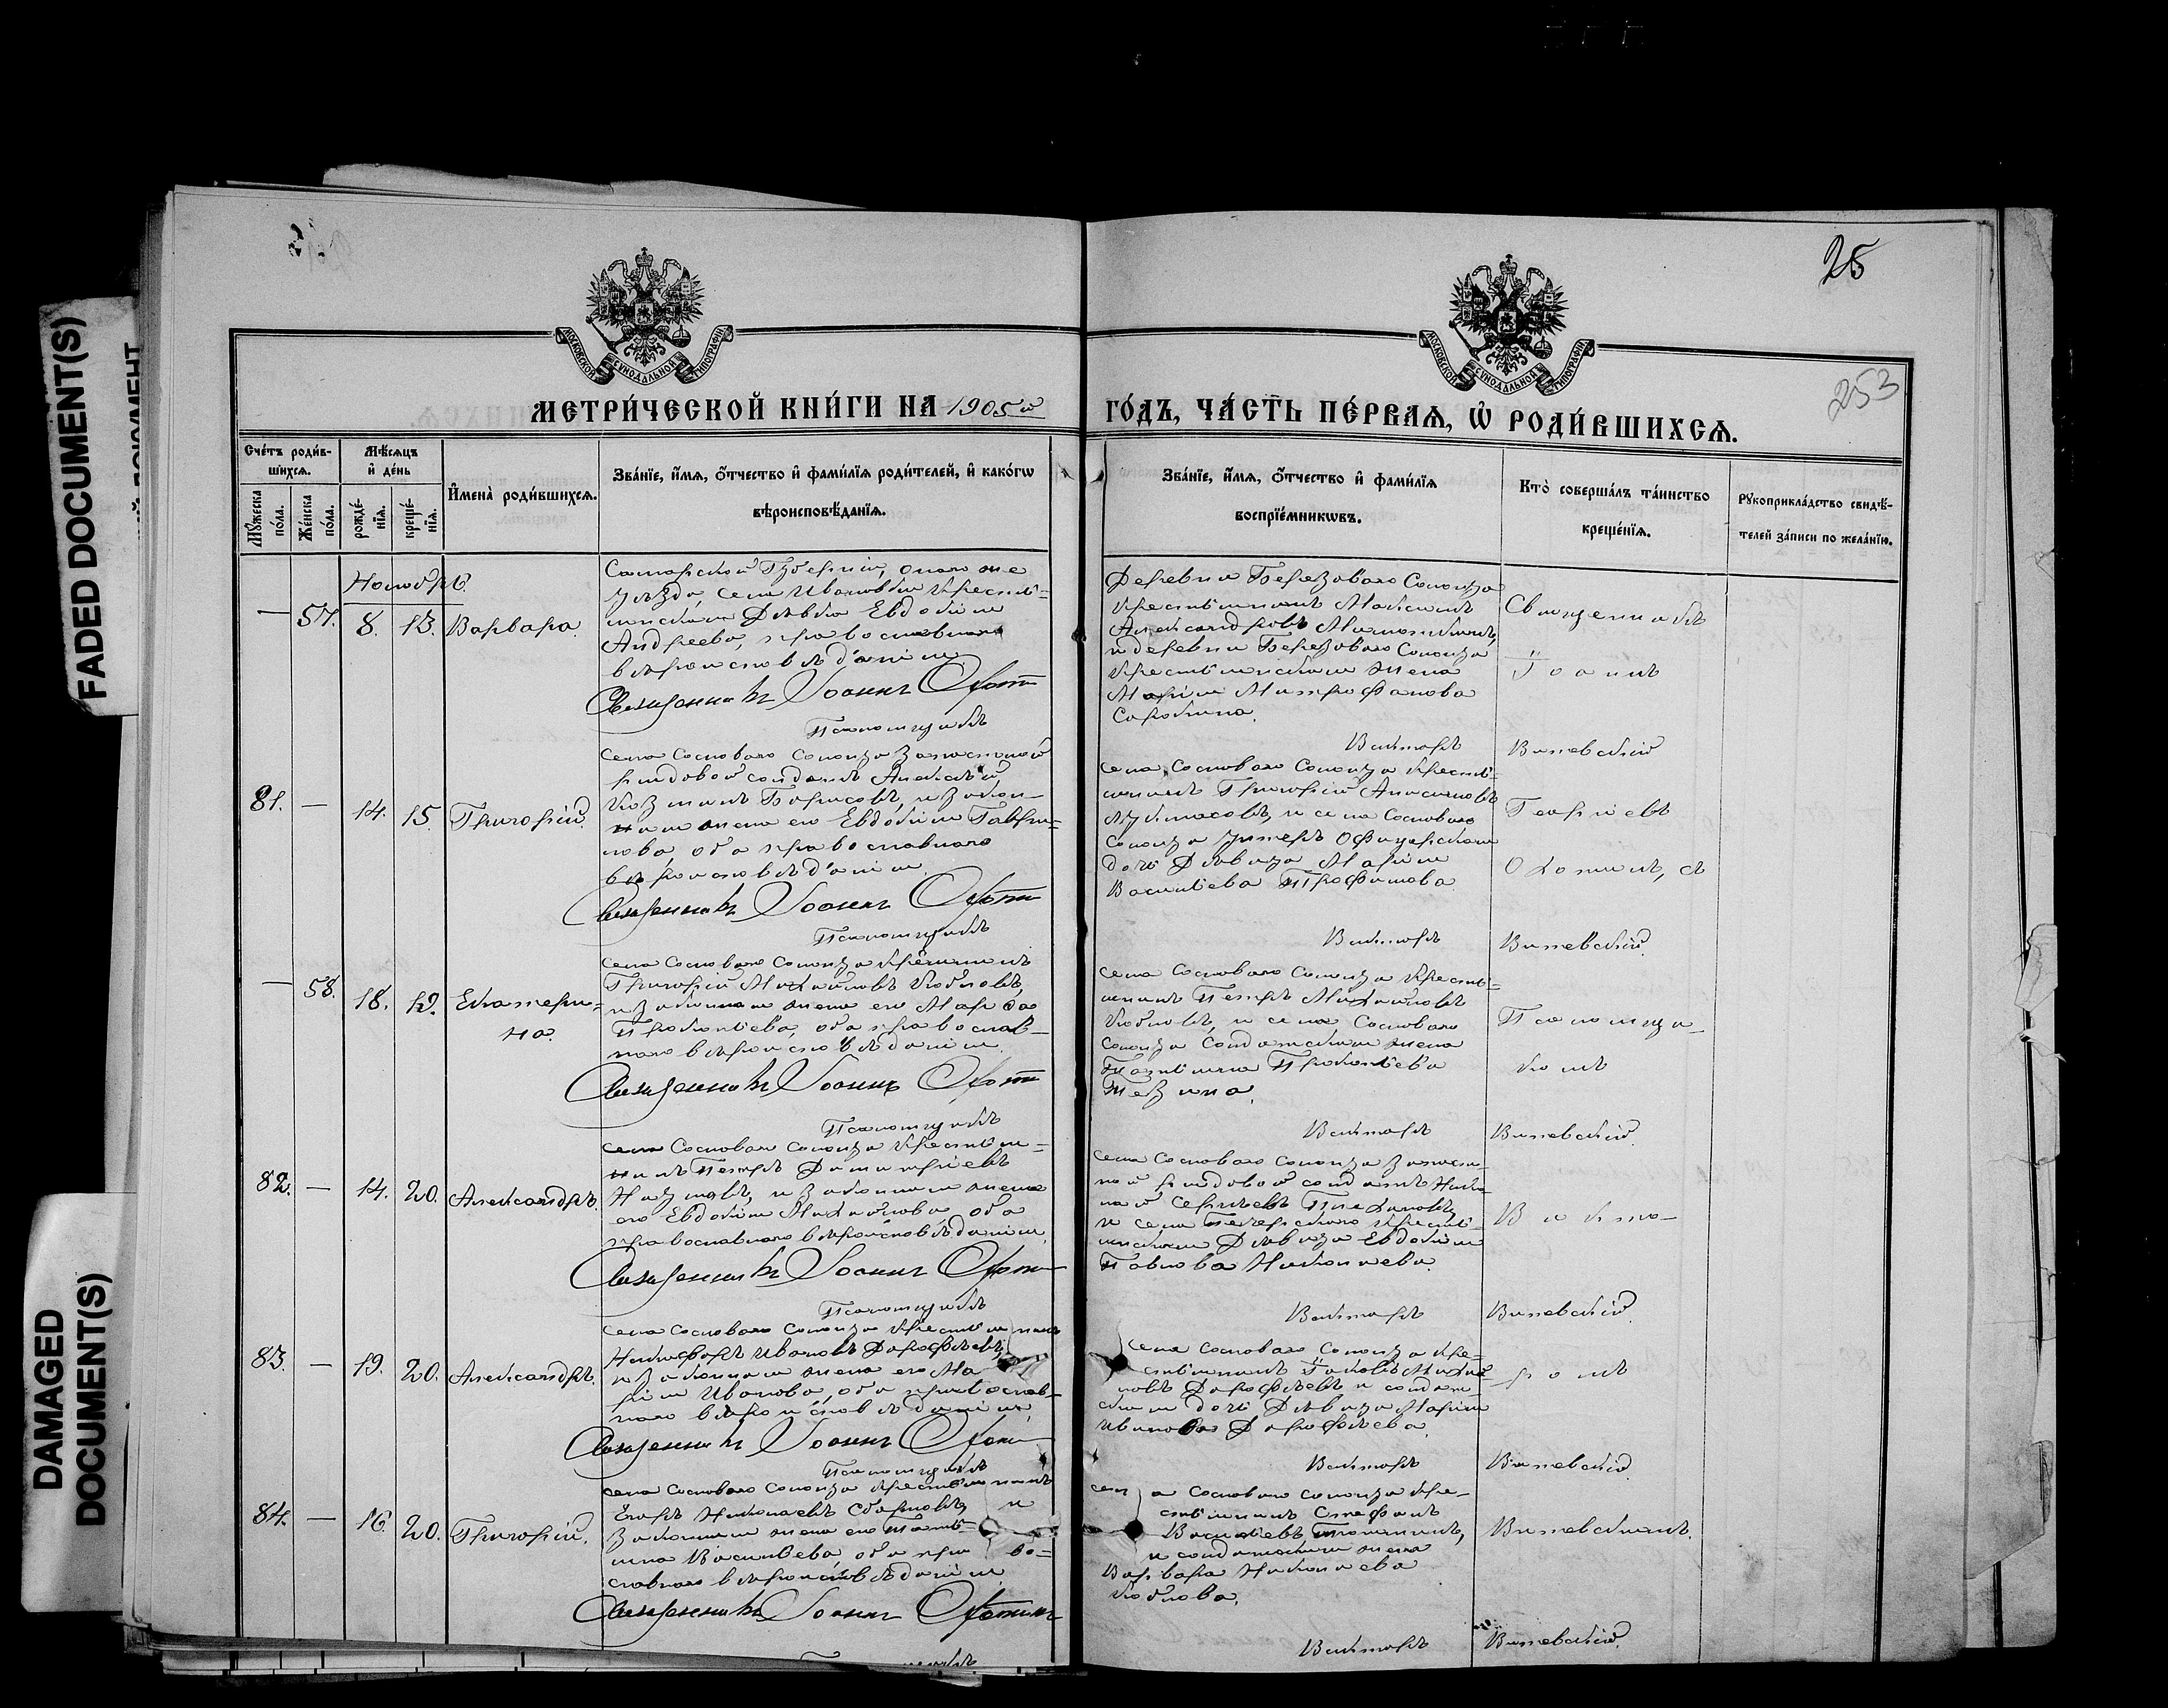 FADED DOCUMENT(S)
DAMAGED
DOCUMENT(S)
25
253
МОСКОВСКОЙ СѴНОДАЛЬНОЙ ТИПОГРАФІИ
МОСКОВСКОЙ СѴНОДАЛЬНОЙ ТИПОГРАФІИ
МЕТРИ́ЧЕСКОЙ КНИ́ГИ НА 1905й
ГО́ДЪ, ЧА́СТЬ ПЕ́РВАѦ, Ѡ҆ РОДИ́ВШИХСѦ.
Сче́тъ роди́в-
шихсѧ.
Мꙋ́жеска
по́ла.
Же́нска
по́ла.
Мѣ́сѧцъ
и҆ де́нь
рожде́-
нїѧ.
креще́-
нїѧ.
И҆мена̀ роди́вшихсѧ.
Зва́нїе, и҆́мѧ, ѻ҆́тчество и҆ фами́лїѧ роди́телей, и҆ како́гѡ
вѣроисповѣ́данїѧ.
Зва́нїе, и҆́мѧ, ѻ҆́тчество и҆ фами́лїѧ
воспрїе́мникѡвъ.
Кто̀ соверша́лъ та́инство
креще́нїѧ.
Рꙋкоприкла́дство свидѣ́-
телей за́писи по жела́нїю.
Ноябрь.
— 57. 8. 13. Варвара.
Самарской Губерніи, онаго же
уѣзда, села Ивановки кресть-
янская Дѣвка Евдокія
Андреева, православнаго
вѣроисповѣданія
Священникъ Іоаннъ
Псаломщикъ
Деревни Березоваго Солонца
крестьянинъ Максимъ
Александровъ
и деревни Березоваго Солонца
крестьянская жена
Марія Митрофанова
Сорокина.
Викторъ
Священникъ
Іоаннъ
Виневскій
81. — 14. 15. Григорій.
села Сосноваго Солонца запасной
рядовой солдатъ Алексѣй
Козьминъ Борисовъ, и закон-
ная жена его Евдокія Гаври-
лова, оба православнаго
вѣроисповѣданія.
Священникъ Іоаннъ
Псаломщикъ
села Сосноваго Солонца кресть-
янинъ Григорій
и села Сосноваго
Солонца Унтеръ Офицерская
дочь Дѣвица Марія
Васильева Трофимова
Викторъ
Георгіевъ
съ
Виневскій.
— 58. 18. 19. Екатери-
на.
села Сосноваго Солонца крестьянинъ
Григорій Михайловъ
и законная жена его Марѳа
Прокопьева, оба православ-
наго вѣроисповѣданія.
Священникъ Іоаннъ
Псаломщикъ
села Сосноваго Солонца кресть-
янинъ Петръ Михайловъ
и села Сосноваго
Солонца Солдатская жена
Татьяна Прокопьева
Викторъ
Псаломщи-
комъ
Виневскій.
82. — 14. 20. Александръ.
села Сосноваго Солонца крестьян-
инъ Петръ Димитріевъ
и законная жена
его Евдокія Михайлова оба
православнаго вѣроисповѣданія.
Священникъ Іоаннъ
Псаломщикъ
села Сосноваго Солонца запас-
ной рядовой солдатъ Нико-
лай Сергѣевъ
и села Печерскаго кресть-
янская Дѣвица Евдокія
Павлова Николаева.
Викторъ
Викто-
Виневскій.
83. — 19. 20. Александръ.
села Сосноваго Солонца крестьянинъ
Никифоръ Ивановъ Дорофѣевъ,
и законная жена его Ма-
рія Иванова, оба православ-
наго вѣроисповѣданія,
Священникъ Іоаннъ
Псаломщикъ
села Сосноваго Солонца кре-
стьянинъ Іаковъ Михай-
ловъ Дорофѣевъ и солдат-
ская дочь Дѣвица Марія
Иванова Дорофѣева.
Викторъ
ромъ
Виневскій.
84. — 16. 20. Григорій.
села Сосноваго Солонца крестьянинъ
Егоръ Николаевъ и
законная жена его Тать-
яна Васильева, оба право-
славнаго вѣроисповѣданія
Священникъ Іоаннъ
села Сосноваго Солонца кре-
стьянинъ Стефанъ
Васильевъ
и солдатская жена
Варвара Николаева
Викторъ
Виневскимъ.
Виневскій.